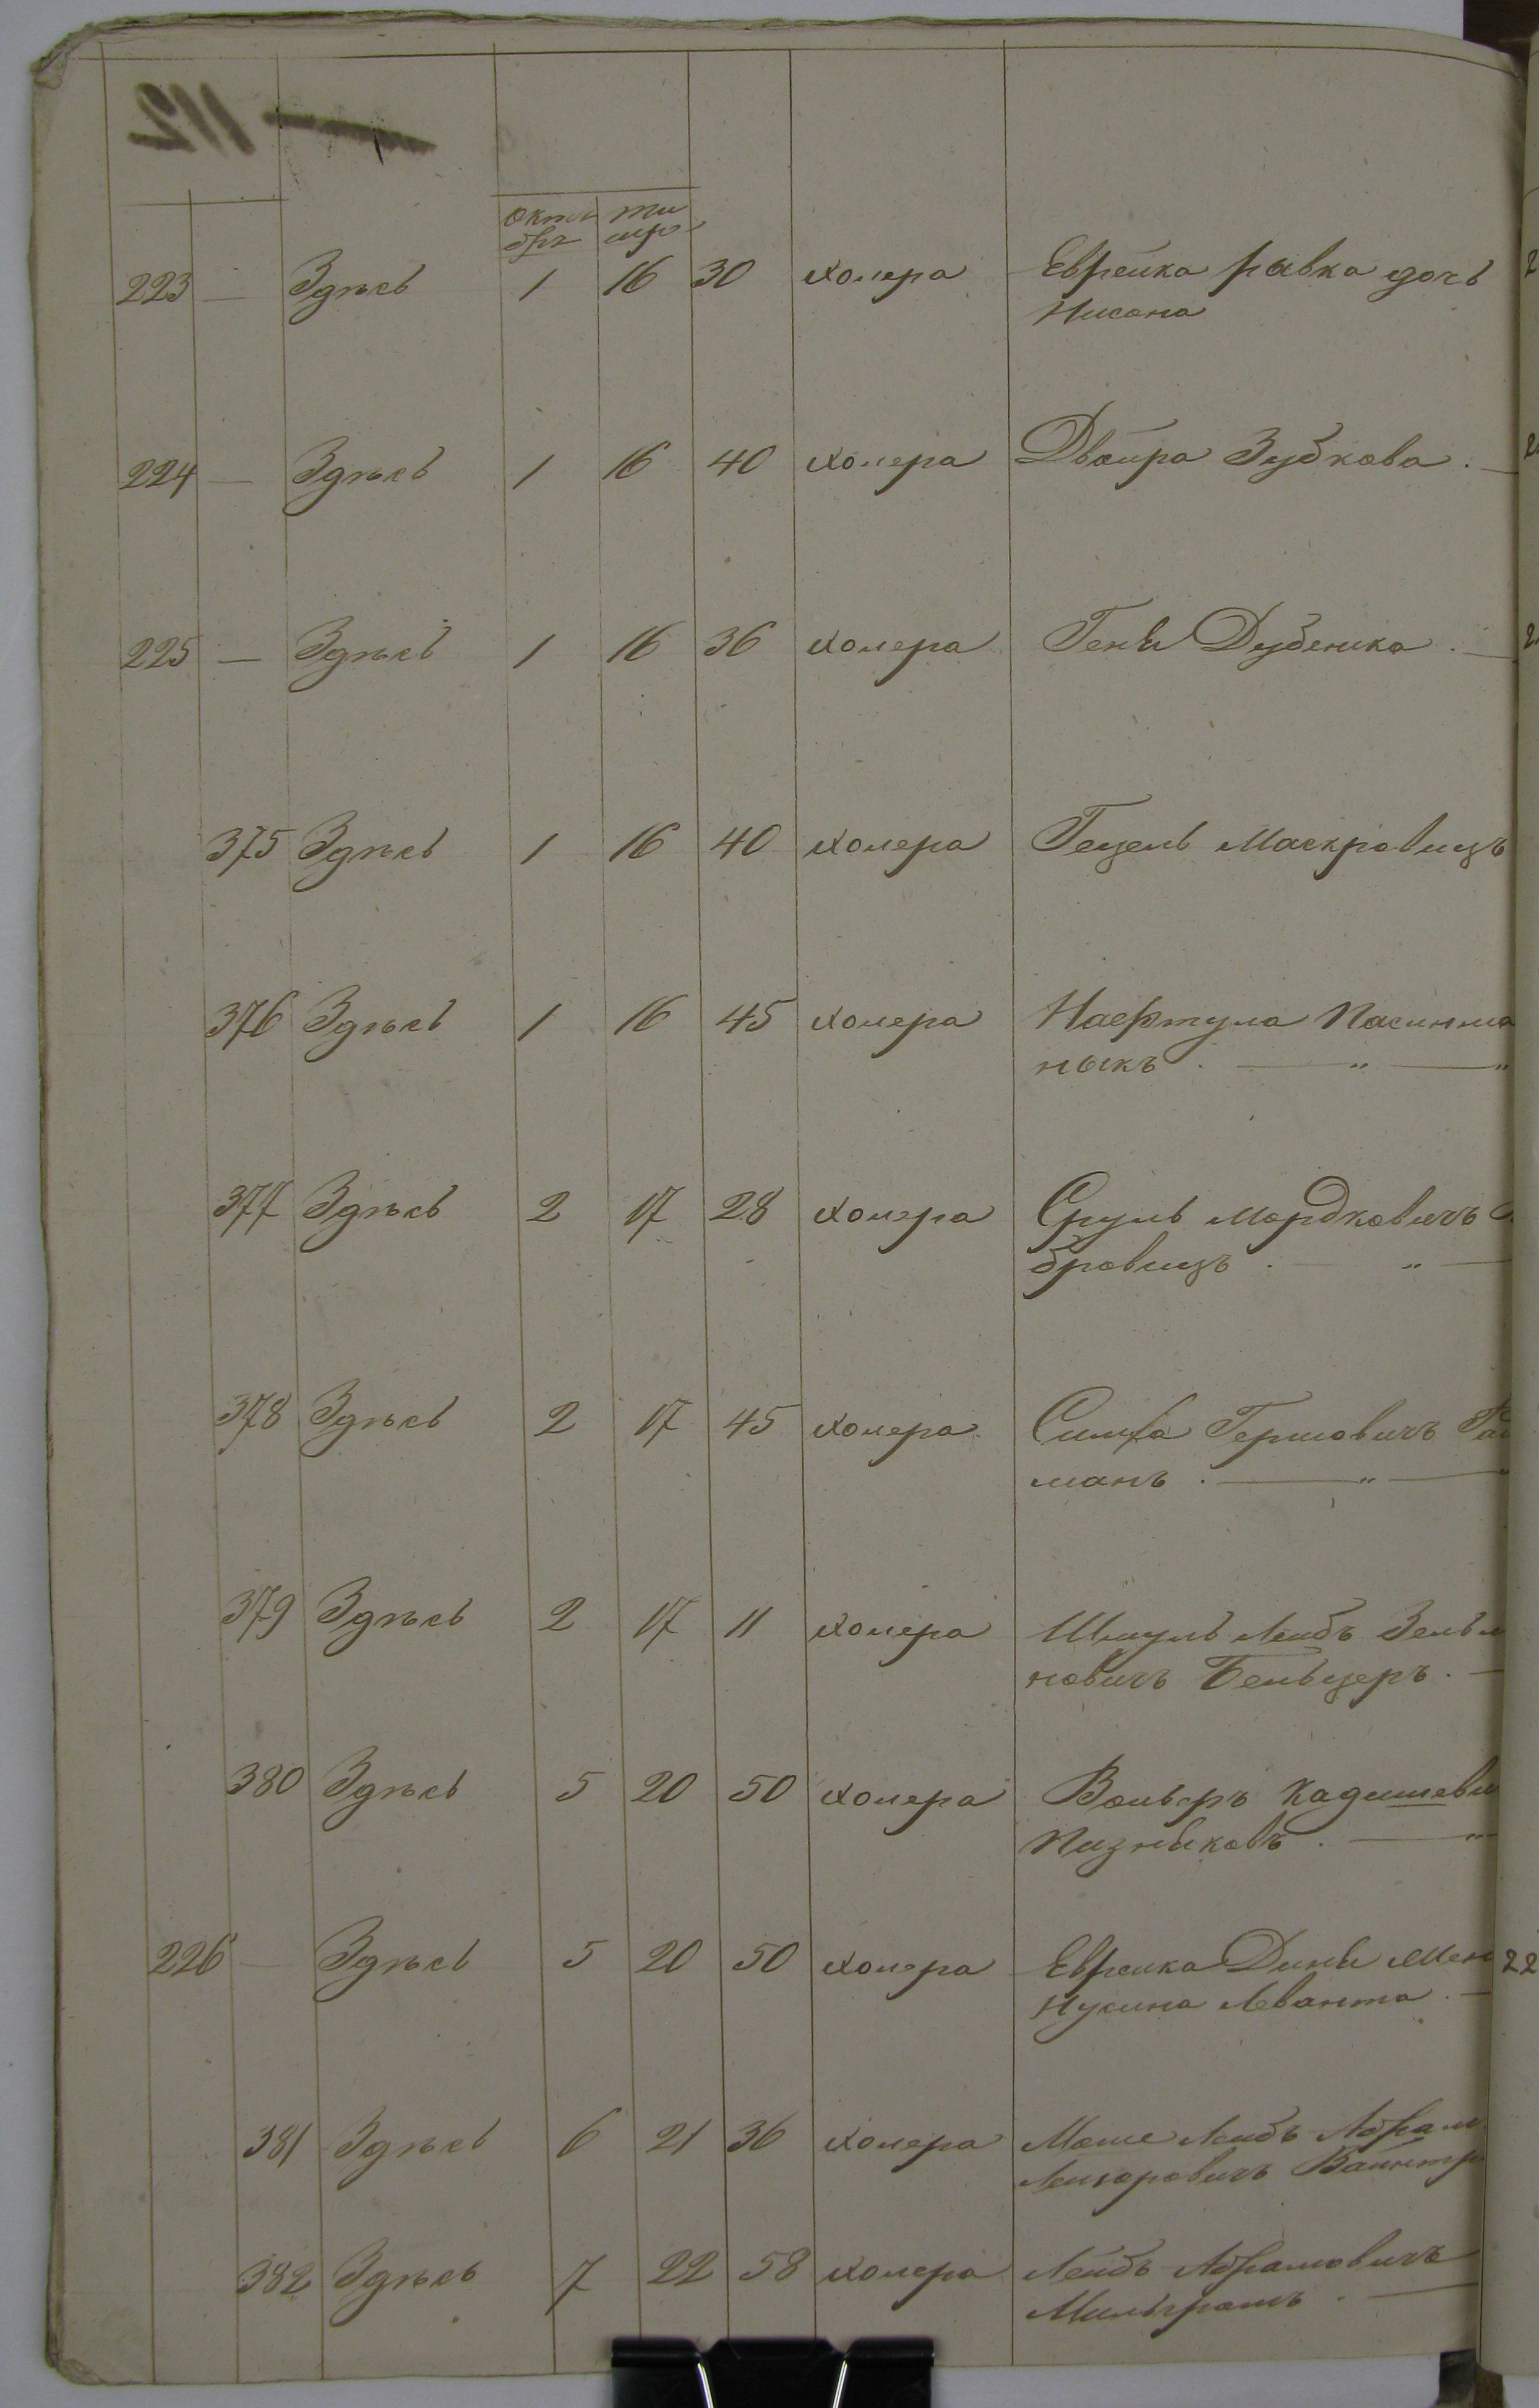 112 —
октя тиш
бря ир
223 — Здѣсь 1 16 30 холера Еврейка Рывка дочь
Нисона
224 — Здѣсь 1 16 40 холера Двойра Зубкова. —
225 — Здѣсь 1 16 36 холера Геня Дубенска. —
375 Здѣсь 1 16 40 холера Гецель Маскровицъ
376 Здѣсь 1 16 45 холера Нафтула
никъ. — „ — „
377 Здѣсь 2 17 28 холера Сруль Мордковичъ
бровицъ. — „ —
378 Здѣсь 2 17 45 холера Симха Гершовичъ
манъ. — „ —
379 Здѣсь 2 17 11 холера Шмуль Лейбъ Зельм
новичъ Бельцеръ. —
380 Здѣсь 5 20 50 холера Вольфъ Кадишеви
Пизниковъ. — „
226 — Здѣсь 5 20 50 холера Еврейка Диня Мен
Нухина Леванта. —
381 Здѣсь 6 21 36 холера Моше Лейбъ Абрам
Лейзоровичъ Вайнтр
382 Здѣсь 7 22 58 холера Лейбъ Абрамовичъ
Мильгромъ. —